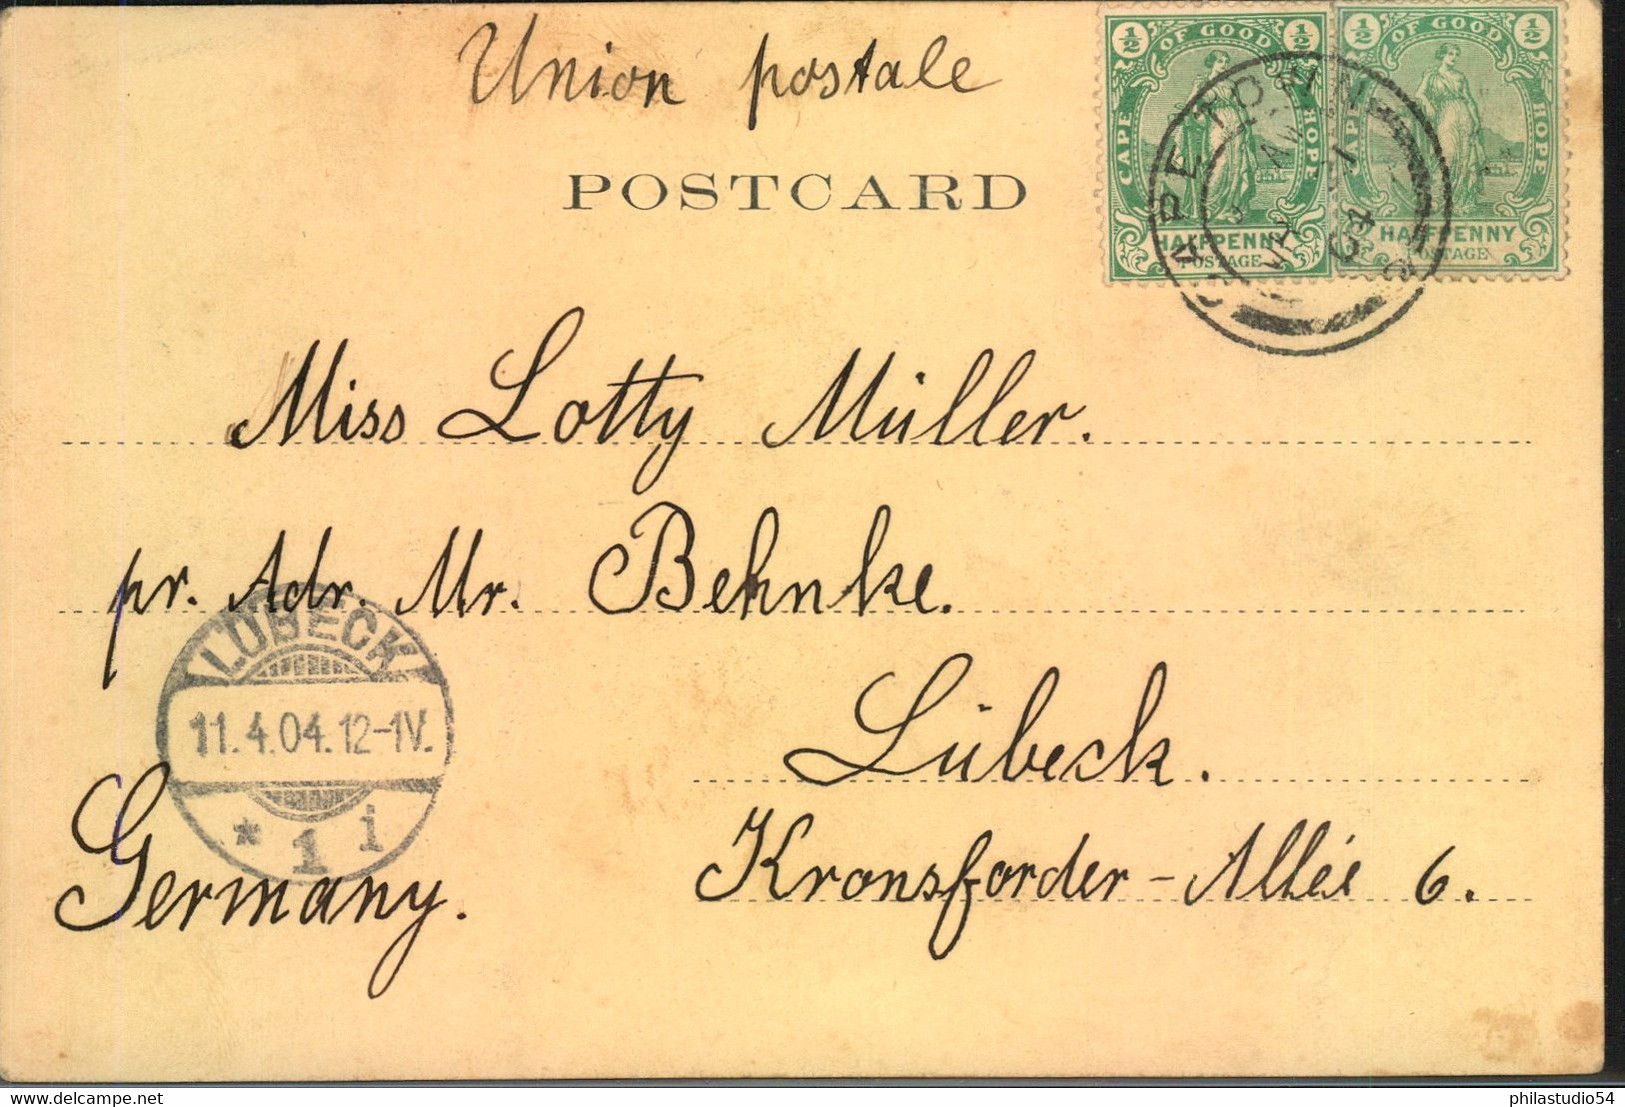 Union postale
POSTCARD
½ OF GOOD ½
CAPE HOPE
HALFPENNY
POSTAGE
½ OF GOOD ½
CAPE HOPE
HALFPENNY
POSTAGE
CAPE TOWN
04
Miss Lotty Müller.
pr. Adr. Mr. Behnke.
LÜBECK
11.4.04.12-1V.
* 1 i
Lübeck.
Kronsforder-Allée 6.
Germany.
delcampe.net
philastudio54